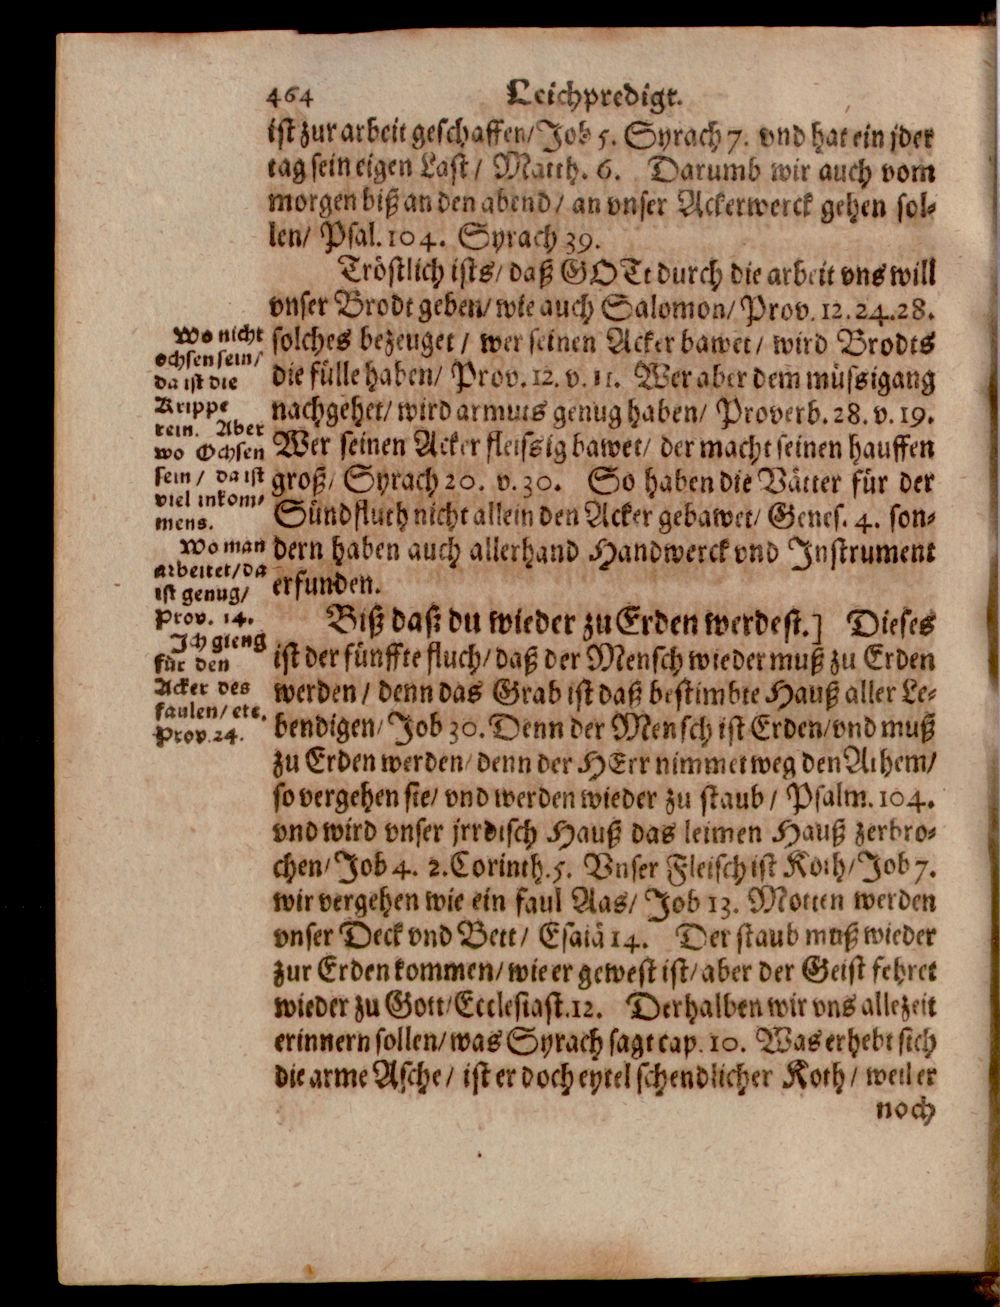 464 Leichpredigt.
ist zur arbeit geschaffen/ Job 5. Syrach 7. vnd hat ein jder
tag sein eigen Last/ Matth. 6. Darumb wir auch vom
morgen biß an den abend/ an vnser Ackerwerck gehen sol-
len/ Psal. 104. Syrach 39.
Tröstlich ists/ daß GOTt durch die arbeit vns will
vnser Brodt geben/ wie auch Salomon/ Prov. 12. 24. 28.
solches bezeuget/ wer seinen Acker bawet/ wird Brodts
die fülle haben/ Prov. 12. v. 11. Wer aber dem müssigang
nachgehet/ wird armuts genug haben/ Proverb. 28. v. 19.
Wer seinen Acker fleissig bawet/ der macht seinen hauffen
groß/ Syrach 20. v. 30. So haben die Vätter für der
Sündfluth nicht allein den Acker gebawet/ Genes. 4. son-
dern haben auch allerhand Handwerck vnd Instrument
erfunden.
Wo nicht
ochsen sein/
da ist die
Krippe
rein. Aber
wo Ochsen
sein/ da ist
viel inkom-
mens.
Wo man
arbeitet/ da
ist genug/
Prov. 14.
Ich gieng
für den
Acker des
faulen/ etc.
Prov. 24.
Biß daß du wieder zu Erden werdest.] Dieses
ist der fünffte fluch/ daß der Mensch wieder muß zu Erden
werden/ denn das Grab ist daß bestimbte Hauß aller Le-
bendigen/ Job 30. Denn der Mensch ist Erden/ vnd muß
zu Erden werden/ denn der HErr nimmet weg den Athem/
so vergehen sie/ vnd werden wieder zu staub/ Psalm. 104.
vnd wird vnser jrrdisch Hauß das leimen Hauß zerbro-
chen/ Job 4. 2. Corinth. 5. Vnser Fleisch ist Koth/ Job 7.
wir vergehen wie ein faul Aas/ Job 13. Motten werden
vnser Deck vnd Bett/ Esaiä 14. Der staub muß wieder
zur Erden kommen/ wie er gewest ist/ aber der Geist kehret
wieder zu Gott/ Ecclesiast. 12. Derhalben wir vns allezeit
erinnern sollen/ was Syrach sagt cap. 10. Was erhebt sich
die arme Asche/ ist er doch eytel schendlicher Koth/ weil er
noch